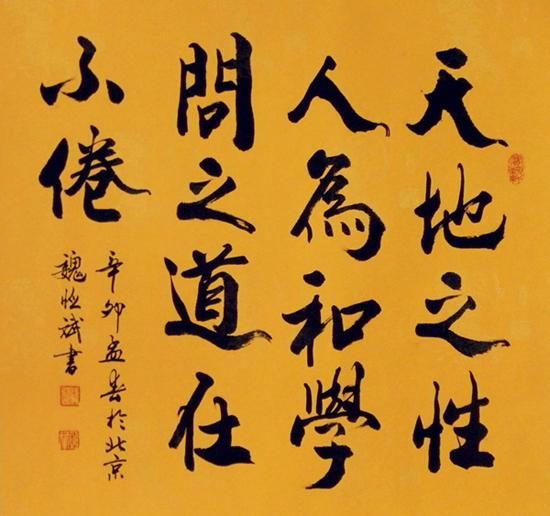 天地之性
人為和學
問之道仕
不倦
辛卯孟春於北京
魏恒斌書